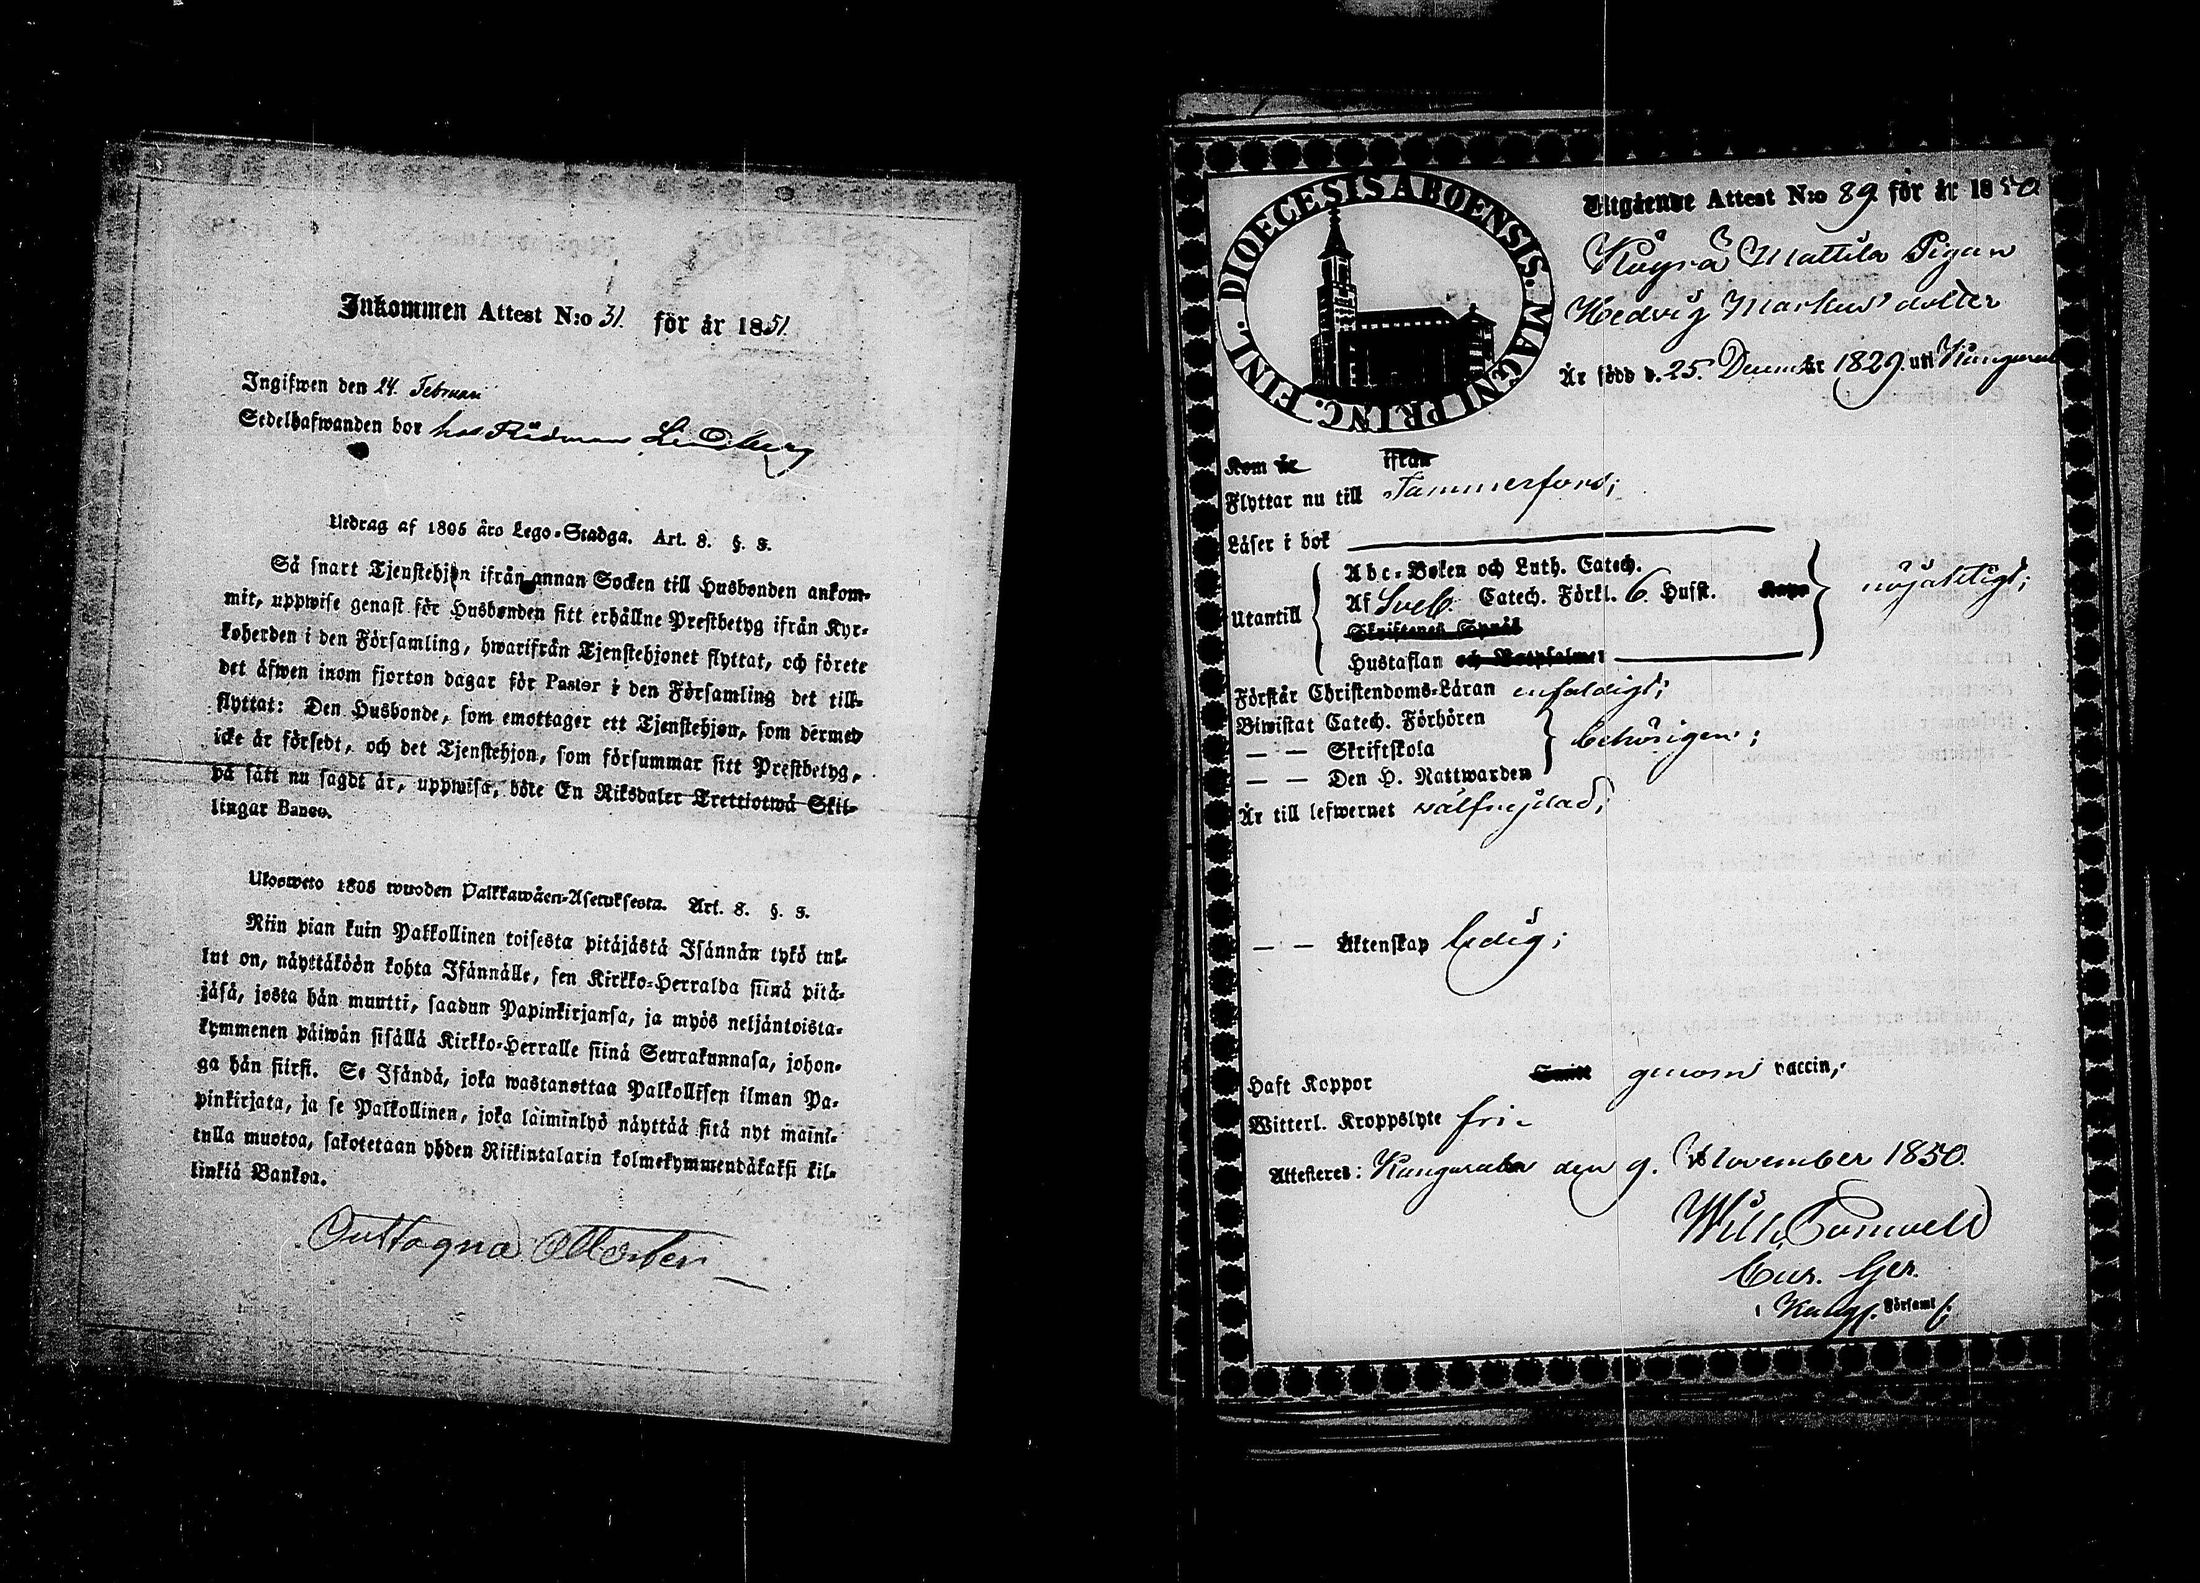 Inkommen Attest N:o 31. för år 1851.
Ingifwen den 24. Februari
Sedelhafwanden bor hos Rådman Lindberg
Utdrag af 1805 åro Lego-Stadga. Art. 8. §. 3.
Så snart Tjenstehjon ifrån annan Socken till Husbonden ankom-
mit, uppwise genast för Husbonden sitt erhållne Prestbetyg ifrån Kyr-
koherden i den Församling, hwarifrån Tjenstehjonet flyttat, och förete
det äfwen inom fjorton dagar för Pastor i den Församling det till-
flyttat: Den Husbonde, som emottager ett Tjenstehjon, som dermed
icke är försedt, och det Tjenstehjon, som försummar sitt Prestbetyg,
på sätt nu sagdt är, uppwisa, böte En Riksdaler Trettiotwå Skil-
lingar Banco.
Ulosweto 1805 wuoden Palkkawäen-Asetuksesta. Art. 8. §. 3.
Niin pian kuin Palkollinen toisesta pitäjästä Isännän tykö tul-
lut on, näyttäköön kohta Isännälle, sen Kirkko-Herralda siinä pitä-
jäsä, josta hän muutti, saadun Papinkirjansa, ja myös neljäntoista-
kymmenen päiwän sisällä Kirkko-Herralle siinä Seurakunnasa, johon-
ga hän siirsi. Se Isändä, joka wastanottaa Palkollisen ilman Pa-
pinkirjata, ja se Palkollinen, joka laiminlyö näyttää sitä nyt maini-
tulla muotoa, sakotetaan yhden Riikintalarin kolmekymmendäkaksi kil-
linkiä Bankoa.
DIOECESIS ABOENSIS. MAGNI PRINC. FINL.
Utgående Attest N:o 89. för år 1850.
Köyrä Mattila Pigan
Hedvig Markus dotter
Är född d. 25. Decemb:r 1829. uti Kangasala
Kom år ifrån
Flyttar nu till Tammerfors;
Läser i bok
Utantill
Abc-Boken och Luth. Catech.
Af Sveb. Catech. Förkl. 6. Hufst. Kaps
Skriftenes Språk
Hustaflan och Botpsalmer
nöjaktigt;
Förstår Christendoms-Läran enfaldigt;
Biwistat Catech. Förhören
— — Skriftskola
— — Den H. Nattwarden
behörigen;
Är till lefwernet välfrejdad;
— — Äktenskap ledig;
Haft Koppor Smitt genom vaccin,
Witterl. Kroppslyte fri.
Attesteres: Kangasala den 9. November 1850.
Cur. Ger.
i Kang. Församl.